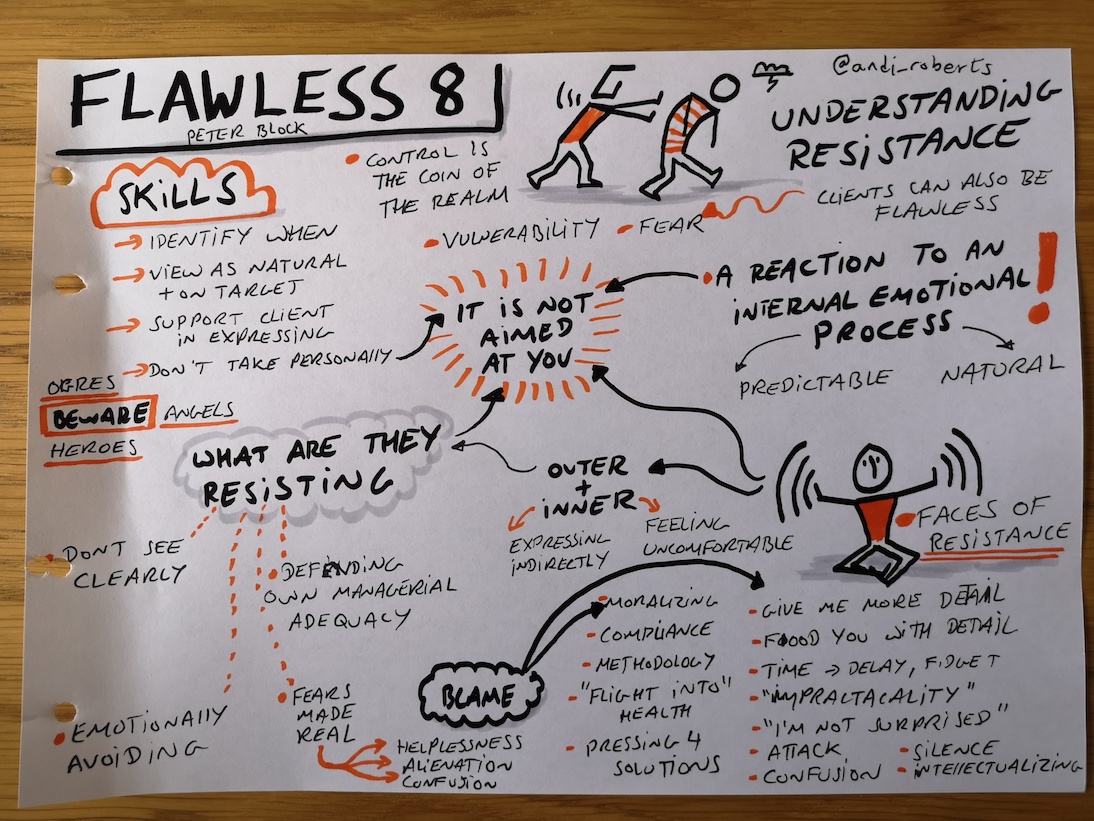 FLAWLESS 8
PETER BLOCK
@andi_roberts
UNDERSTANDING
RESISTANCE
SKILLS
→ IDENTIFY WHEN
→ VIEW AS NATURAL
+ ON TARGET
→ SUPPORT CLIENT
IN EXPRESSING
→ DON'T TAKE PERSONALLY
• CONTROL IS
THE COIN OF
THE REALM
• VULNERABILITY
• FEAR
CLIENTS CAN ALSO BE
FLAWLESS
IT IS NOT
AIMED
AT YOU
• A REACTION TO AN
INTERNAL EMOTIONAL
PROCESS
!
PREDICTABLE
NATURAL
OGRES
BEWARE ANGELS
HEROES
WHAT ARE THEY
RESISTING
OUTER
+
INNER
EXPRESSING
INDIRECTLY
FEELING
UNCOMFORTABLE
• FACES OF
RESISTANCE
• DONT SEE
CLEARLY
• DEFENDING
OWN MANAGERIAL
ADEQUACY
• EMOTIONALLY
AVOIDING
• FEARS
MADE
REAL
HELPLESSNESS
ALIENATION
CONFUSION
BLAME
• MORALIZING
• COMPLIANCE
• METHODOLOGY
• "FLIGHT INTO"
HEALTH
• PRESSING 4
SOLUTIONS
• GIVE ME MORE DETAIL
• FLOOD YOU WITH DETAIL
• TIME → DELAY, FIDGET
• "IMPRACTACALITY"
• "I'M NOT SURPRISED"
• ATTACK
• SILENCE
• CONFUSION
• INTELLECTUALIZING